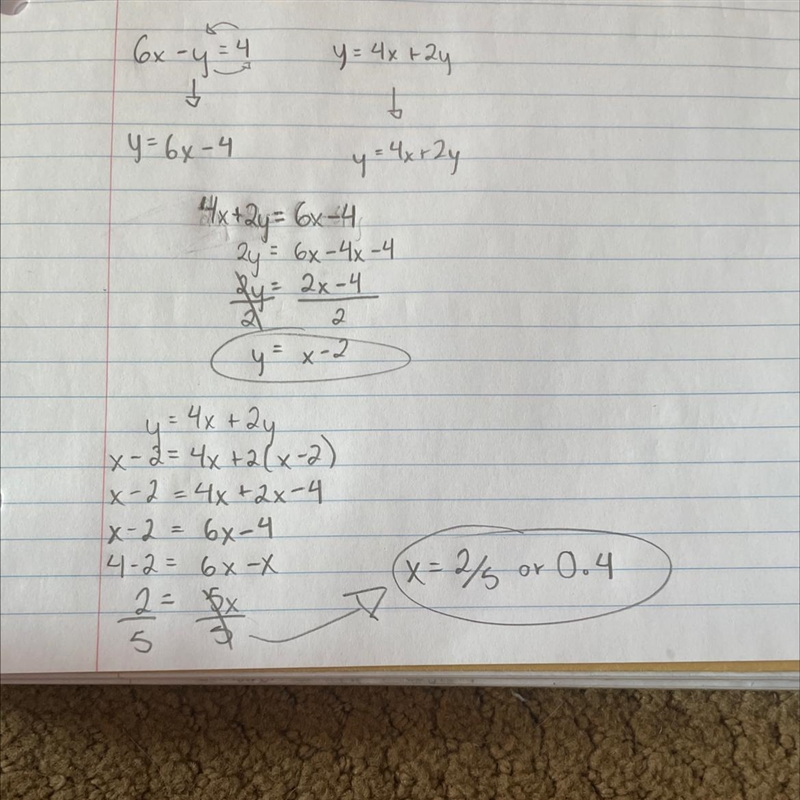 6x - y = 4
y = 4x + 2y
y = 6x - 4
y = 4x + 2y
4x + 2y = 6x - 4
2y = 6x - 4x - 4
2y = 2x - 4
2 2
y = x - 2
y = 4x + 2y
x - 2 = 4x + 2(x - 2)
x - 2 = 4x + 2x - 4
x - 2 = 6x - 4
4 - 2 = 6x - x
2 = 5x
5 5
x = 2/5 or 0.4